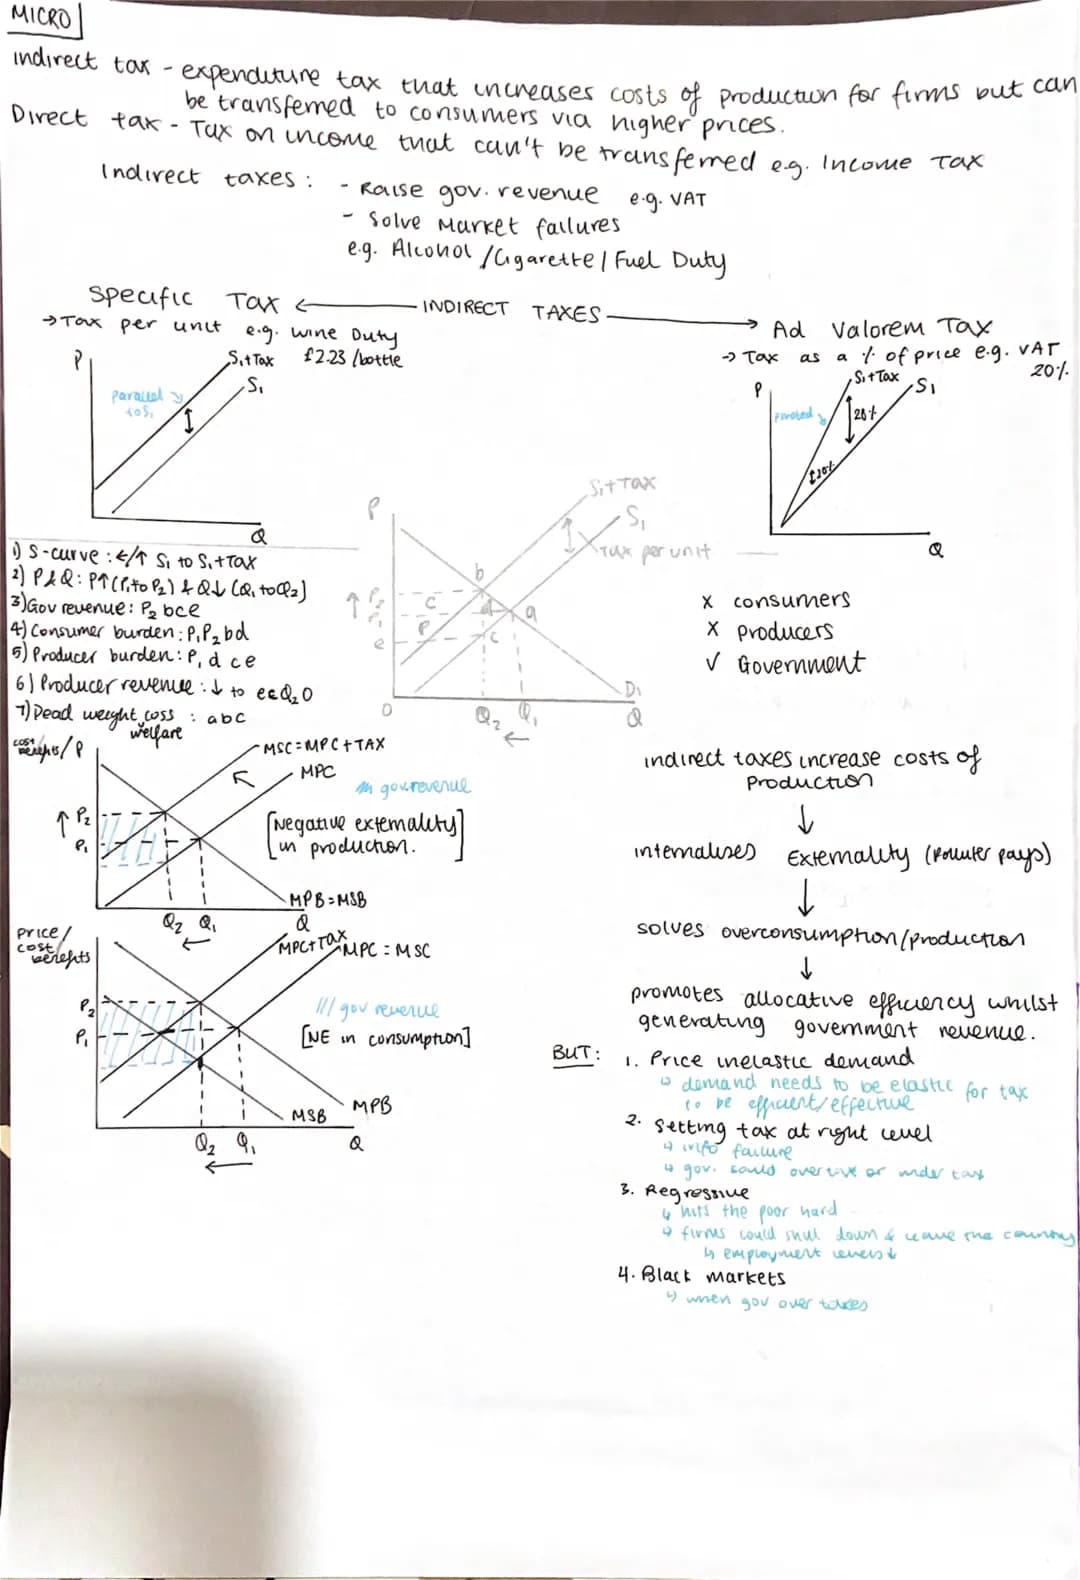 MICRO
indirect tax - expenditure tax that increases costs of production for firms but can
be transferred to consumers via higher prices.
Direct tax - Tax on income that can't be transferred e.g. Income Tax
Indirect taxes : - Raise gov. revenue e.g. VAT
- Solve Market failures
e.g. Alcohol / Cigarette / Fuel Duty
Specific Tax ← INDIRECT TAXES → Ad Valorem Tax
→ Tax per unit e.g. wine Duty
£2.23 /bottle
→ Tax as a % of price e.g. VAT
20%
P
S₁+Tax
S₁
parallel
to S₁
Q
P
S₁+Tax
S₁
pivoted
20%
20%
Q
1) S-curve : ←/↑ S₁ to S₁+Tax
2) P & Q : P↑ (P₁ to P₂) & Q↓ (Q₁ to Q₂)
3) Gov revenue : P₂ bce
4) Consumer burden : P₁P₂bd
5) Producer burden : P₁ d c e
6) Producer revenue : ↓ to ecQ₂O
7) Dead weight welfare loss : abc
P
S₁+Tax
S₁
Tax per unit
b
↑ P₂
C
P₁
d
a
P
e
c
D₁
O
Q₂
Q₁
Q
←
X consumers
X producers
✓ Government
cost/benefits / P
MSC = MPC + TAX
MPC
/// gov revenue
[Negative externality
in production.]
↑ P₂
P₁
MPB = MSB
Q₂ Q₁
Q
←
price/
cost/
benefits
MPC+Tax
MPC = MSC
/// gov revenue
[NE in consumption]
P₂
P₁
MSB
MPB
Q₂ Q₁
Q
←
indirect taxes increase costs of
production
↓
internalises Externality (Polluter pays)
↓
solves overconsumption/production
↓
promotes allocative efficiency whilst
generating government revenue.
BUT : 1. Price inelastic demand
↳ demand needs to be elastic for tax
to be efficient/effective
2. Setting tax at right level
↳ info failure
↳ gov. could over tax or under tax
3. Regressive
↳ hits the poor hard
↳ firms could shut down & leave the country
↳ employment levels ↓
4. Black markets
↳ when gov over taxes